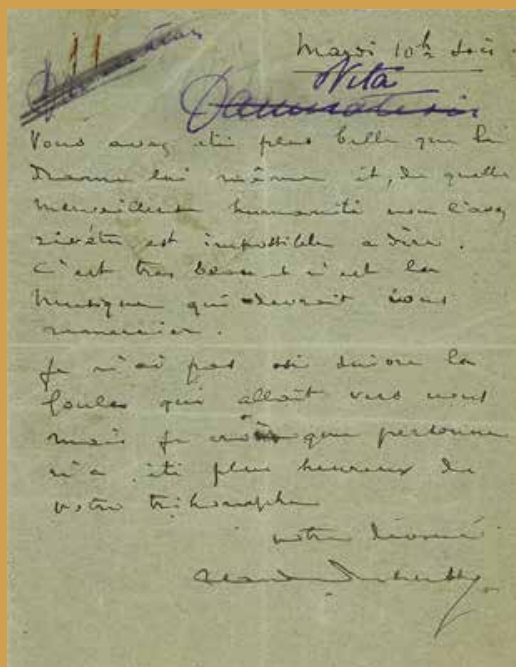 Mardi 10h soir
Vita
Damnation
Vous avez été plus belle que le
Drame lui même et, de quelle
merveilleuse humanité vous l'avez
revêtu est impossible a dire.
C'est très beau et c'est la
musique qui devrait vous
remercier.
Je n'ai pas osé suivre la
foule qui allait vers vous
mais je crois que personne
n'a été plus heureux de
votre triomphe
votre dévoué
Claude Debussy